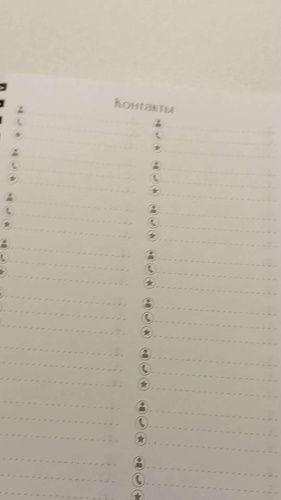 Контакты